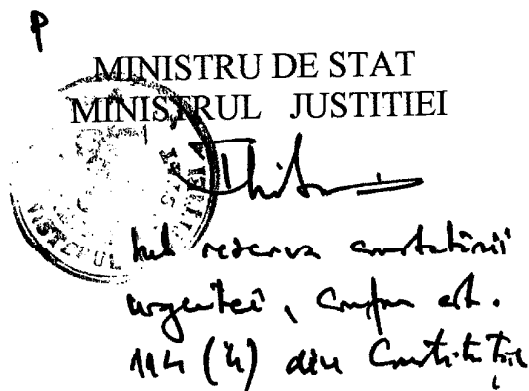 P
MINISTRU DE STAT
MINISTRUL JUSTITIEI
sub rezerva constatării
urgenței, conform art.
114 (4) din Constituție